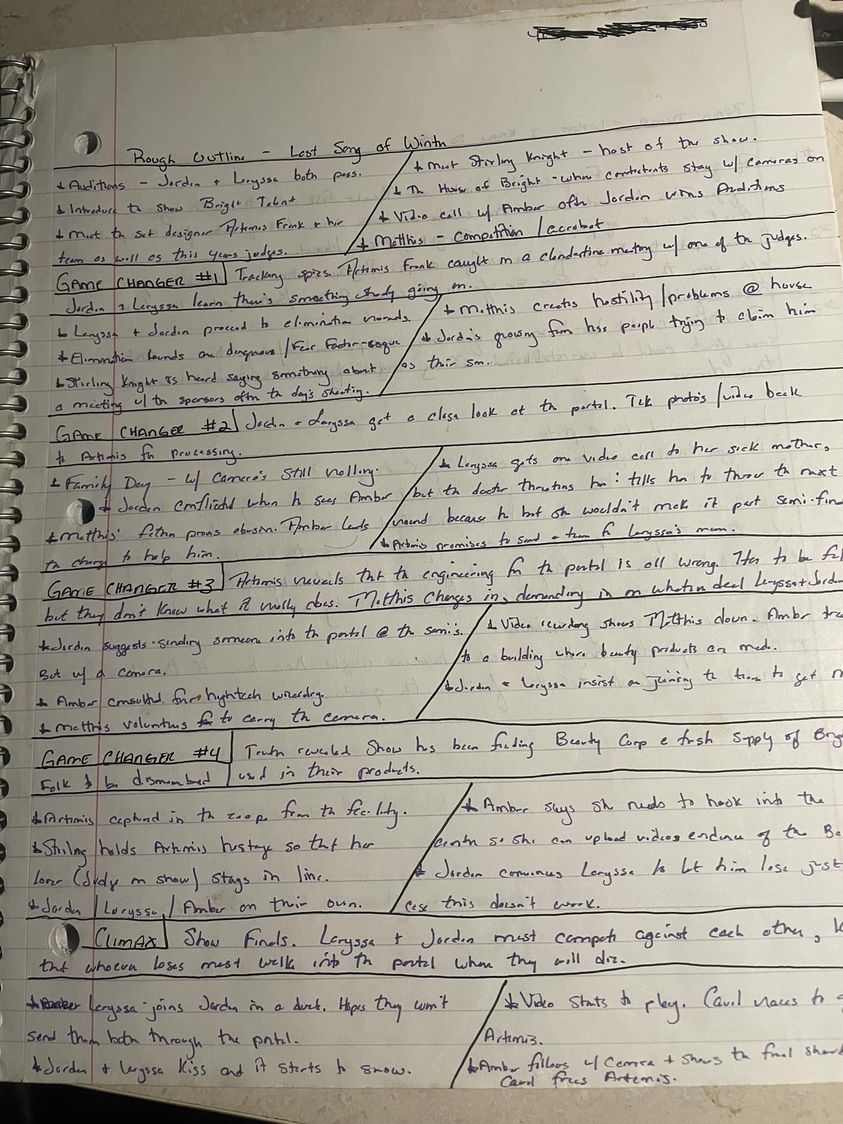 Rough Outline - Last Song of Winth
↳ Auditions - Jordan + Laryssa both pass.
↳ Introduce to show Bright Talent
↳ Meet the set designer Artemis Frank + her
team as well as this years judges.
↳ Meet Stirling Knight - host of the show.
↳ The House of Bright - where contestants stay w/ cameras on
↳ Video call w/ Amber after Jordan wins Auditions
↳ Matthis - competition / acrobat
GAME CHANGER #1 Tracking spies. Artemis Frank caught in a clandestine meeting w/ one of the judges.
Jordan + Laryssa learn there's something shady going on.
↳ Laryssa + Jordan proceed to elimination rounds.
↳ Elimination rounds are dangerous / Fear Factor-esque
↳ Stirling Knight is heard saying something about
a meeting w/ the sponsors after the day's shooting.
↳ Matthis creates hostility/problems @ house
↳ Jordan's growing fan has people trying to claim him
as their son.
GAME CHANGER #2 Jordan + Laryssa get a close look at the portal. Take photos/video back
to Artemis for processing.
↳ Family Day - w/ Camera's still rolling.
↳ Jordan conflicted when he sees Amber
↳ Matthis' father proves abusive. Amber leads
the charge to help him.
↳ Laryssa gets one video call to her sick mother,
but the doctor threatens her: tells her to throw the next
round because he bet she wouldn't make it past semi-fin
↳ Artemis promises to send a team for Laryssa's mom.
GAME CHANGER #3 Artemis reveals that the engineering for the portal is all wrong. Has to be
but they don't know what it really does. Matthis Charges in, demanding in on whatever deal Laryssa + Jordan
↳ Jordan suggests sending someone into the portal @ the semi's.
But w/ a camera.
↳ Amber consulted for hightech wizardry.
↳ Matthis volunteers to carry the camera.
↳ Video recording shows Matthis down. Amber
to a building where beauty products are made.
↳ Jordan + Laryssa insist on joining the team to get
GAME CHANGER #4 Truth revealed Show has been feeding Beauty Corp a fresh supply of
Folk to be dismembered / used in their products.
↳ Artemis captured in the escape from the facility.
↳ Stirling holds Artemis hostage so that her
lover (judge on show) stays in line.
↳ Jordan / Laryssa / Amber on their own.
↳ Amber says she needs to hook into the
so she can upload videos evidence of the
↳ Jordan convinces Laryssa to let him lose just
case this doesn't work.
CLIMAX Show Finals. Laryssa + Jordan must compete against each other,
that whoever loses must walk into the portal where they will die.
↳ Laryssa joins Jordan in a duet. Hopes they won't
send them both through the portal.
↳ Jordan + Laryssa Kiss and it starts to snow.
↳ Video starts to play. Cavil races to
Artemis.
↳ Amber follows w/ Camera + shows the final
Cavil frees Artemis.